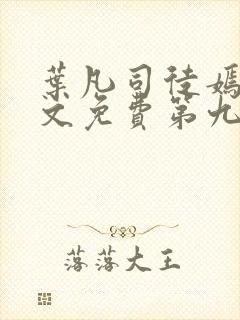 葉凡司徒嫣
文免費第九
落落大王